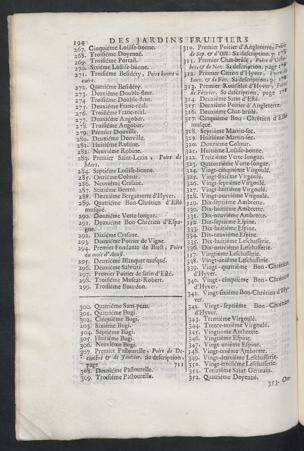 194 DES JARDINS FRUITIERS
267. Cinquiéme Loüise-bonne.
268. Troisiéme Doyenné.
269. Troisiéme Portail.
270. Sixiéme Loüise-bonne.
271. Troisiéme Besidéry, Poire bonne à cuire.
272. Quatriéme Besidéry.
273. Deuxiéme Double-fleur.
274. Troisiéme Double-fleur.
275. Deuxiéme Franc-réal.
276. Troisiéme Franc-réal.
277. Deuxiéme Angober.
278. Troisiéme Angober.
279. Premier Donville.
280. Deuxiéme Donville.
281. Huitiéme Robine.
282. Neuviéme Robine.
283. Premier Saint-Lezin, Poire de
284. Septiéme Loüise-bonne.
285. Onziéme Colmar.
286. Neuviéme Crasane.
287. Sixiéme Beurré.
288. Deuxiéme Bergamotte d'Hyver.
289. Quatriéme Bon-Chrétien d'Esté musqué.
290. Deuxiéme Verte-longue.
291. Deuxiéme Bon Chrétien d'Espagne.
292. Dixiéme Crasane.
293. Deuxiéme Poirier de Vigne.
294. Premier Fondante de Brest, Poire du mois d'Aoust.
295. Deuxiéme Blanquet musqué.
296. Deuxiéme Salviati.
297. Deuxiéme Poirier de satin d'Esté.
298. Troisiéme Muscat-Robert.
299. Troisiéme Bourdon.
300. Quatriéme Sans-peau.
301. Quatriéme Bugi.
302. Cinquiéme Bugi.
303. Sixiéme Bugi.
304. Septiéme Bugi.
305. Huitiéme Bugi.
306. Neuviéme Bugi.
307. Premier Pastourelle, Poire de Decembre & de Janvier. Sa description, page
308. Deuxiéme Pastourelle.
309. Troisiéme Pastourelle.
310. Premier Poirier d'Angleterre, Poire de Sep. & d'Oct. Sa description, p.
311. Premier Chat-brûlé, Poire d'Octobre, & de Nov. Sa description, page
312. Premier Citron d'Hyver, Poire de Janv. & de Fév. Sa description, page
313. Premier Rousselet d'Hyver, Poire de Février. Sa description, page
314. Deuxiéme Satin d'Esté.
315. Deuxiéme Poirier d'Angleterre.
316. Deuxiéme Chat-brûlé.
317. Cinquiéme Bon-Chrétien d'Esté musqué.
318. Septiéme Martin-sec.
319. Huitiéme Martin-sec.
320. Douziéme Colmar.
321. Huitiéme Loüise-bonne.
322. Treiziéme Verte-longue.
323. Quatorziéme Verte-longue.
324. Vingt-cinquiéme Virgoulé.
325. Vingt-sixiéme Virgoulé.
326. Vingt-septiéme Virgoulé.
327. Vingt-huitiéme Virgoulé.
328. Vingt-neuviéme Virgoulé.
329. Dix-septiéme Ambrette.
330. Dix-huitiéme Ambrette.
331. Dix-neuviéme Ambrette.
332. Dix-septiéme Espine.
333. Dix-huitiéme Espine.
334. Dix-neuviéme Espine.
335. Dix-huitiéme Leschasserie.
336. Dix-neuviéme Leschasserie.
337. Vingtiéme Leschasserie.
338. Vingt-uniéme Leschasserie.
339. Vingt-quatriéme Bon-Chrétien d'Hyver.
340. Vingt-cinquiéme Bon-Chrétien d'Hyver.
341. Vingt-sixiéme Bon-Chrétien d'Hyver.
342. Vingt-septiéme Bon-Chrétien d'Hyver.
343. Trentiéme Virgoulé.
344. Trente-uniéme Virgoulé.
345. Vingtiéme Ambrette.
346. Vingtiéme Espine.
347. Vingt-uniéme Espine.
348. Vingt-uniéme Ambrette.
349. Vingt-deuxiéme Leschasserie.
350. Vingt-troisiéme Leschasserie.
351. Troisiéme Saint Germain.
352. Quatriéme Doyenné.